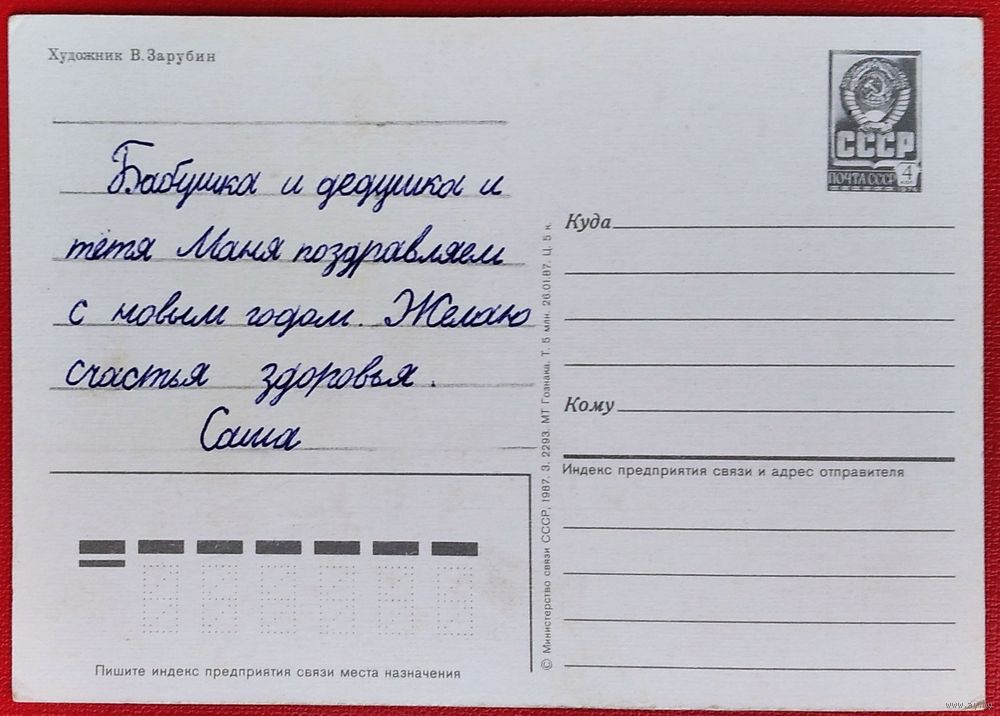 Художник В. Зарубин
СССР
ПОЧТА СССР
4
коп
1976
Бабушка и дедушка и
тётя Маня поздравляем
с новым годом. Желаю
счастья здоровья.
Саша
Куда
Кому
Индекс предприятия связи и адрес отправителя
© Министерство связи СССР, 1987. З. 2293. МТ Гознака. Т. 5 млн. 26.01.87. Ц. 5 к.
Пишите индекс предприятия связи места назначения